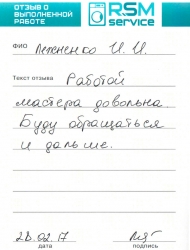 ОТЗЫВ О
ВЫПОЛНЕННОЙ
РАБОТЕ
RSM
service
ФИО Лепененко И. И.
Текст отзыва Работой
мастера довольна.
Буду обращаться
и дальше.
28.02.17
дата подпись